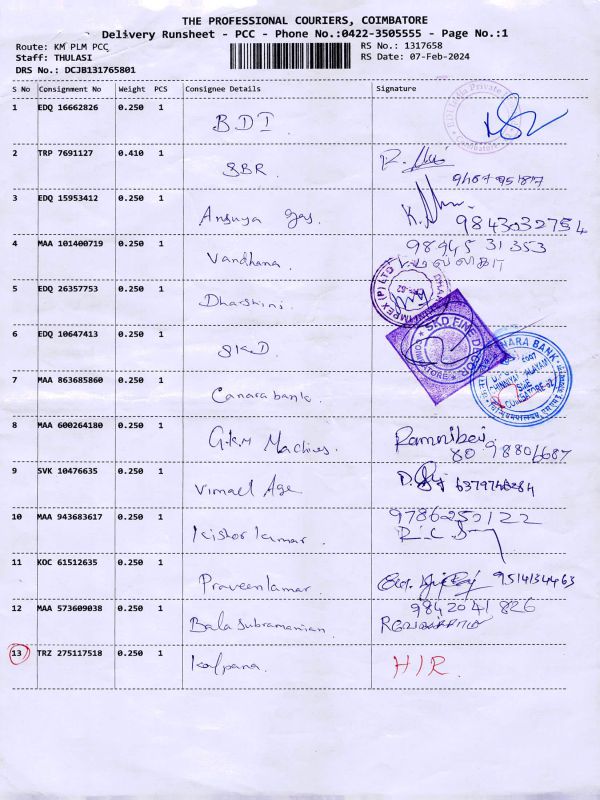 THE PROFESSIONAL COURIERS, COIMBATORE
Delivery Runsheet - PCC - Phone No.:0422-3505555 - Page No.:1
Route: KM PLM PCC
RS No.: 1317658
Staff: THULASI
RS Date: 07-Feb-2024
DRS No.: DCJB131765801
S No Consignment No Weight PCS Consignee Details Signature
1 EDQ 16662826 0.250 1 BDI
2 TRP 7691127 0.410 1 SBR
3 EDQ 15953412 0.250 1 Ansuya gas. 9843032754
4 MAA 101400719 0.250 1 Vandhana. 98945 31353
5 EDQ 26357753 0.250 1 Dharshini.
6 EDQ 10647413 0.250 1 SKD. SKD FINE DECOR
7 MAA 863685860 0.250 1 Canara bank. CANARA BANK
8 MAA 600264180 0.250 1 G.K.M Machines.
9 SVK 10476635 0.250 1 Vimael Age 6379748284
10 MAA 943683617 0.250 1 Kishor kumar. 9786250122
11 KOC 61512635 0.250 1 Praveenkumar. 9514134463
12 MAA 573609038 0.250 1 Bala subramanian. 9842041826
13 TRZ 275117518 0.250 1 Kalpana. H/R.